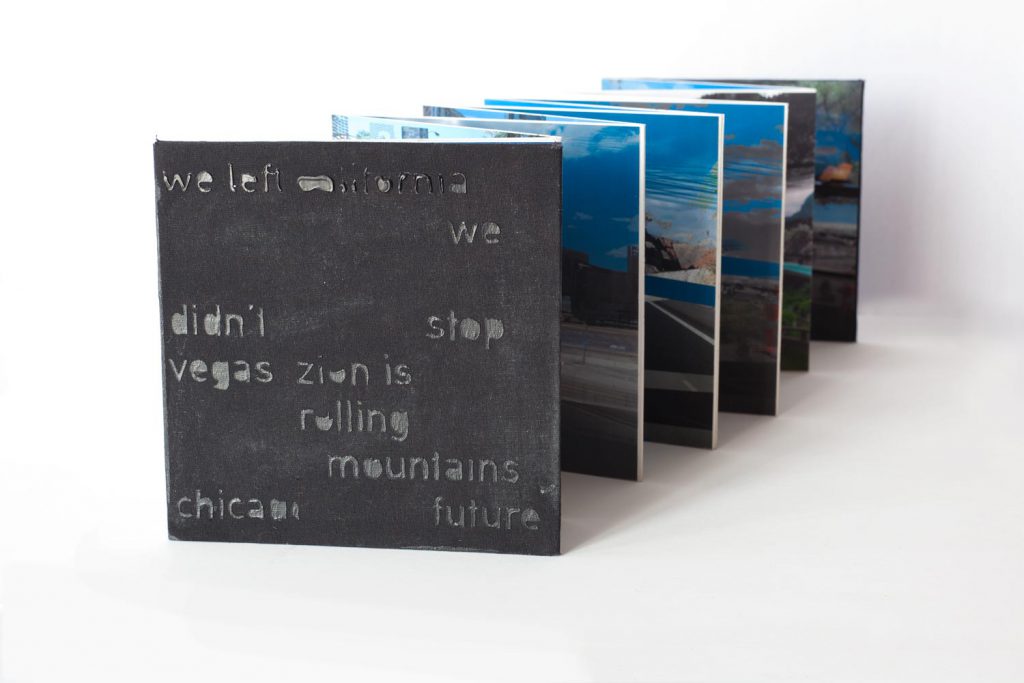 we left california
we
didn't stop
vegas zion is
rolling
mountains
chicago future